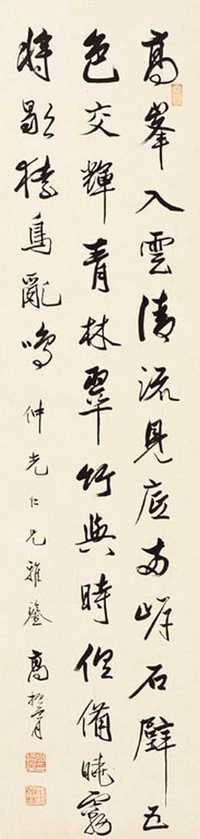 高峯入雲清流見底兩岸石壁五
色交輝青林翠竹與時俱備曉霧
將歇猿鳥亂鳴 仲光仁兄雅鑒 高振霄